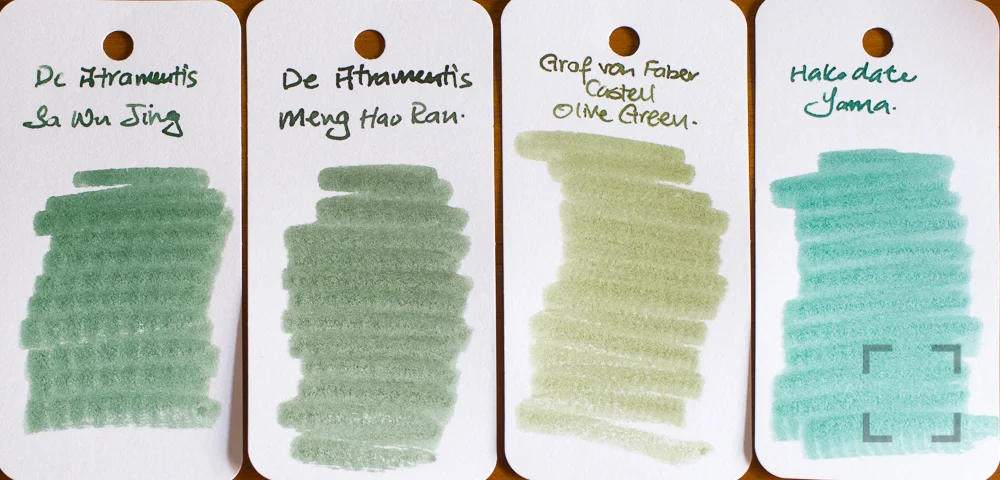 De Atramentis
Sa Wu Jing
De Atramentis
Meng Hao Ran.
Graf von Faber
Castell
Olive Green.
Hakodate
Yama.